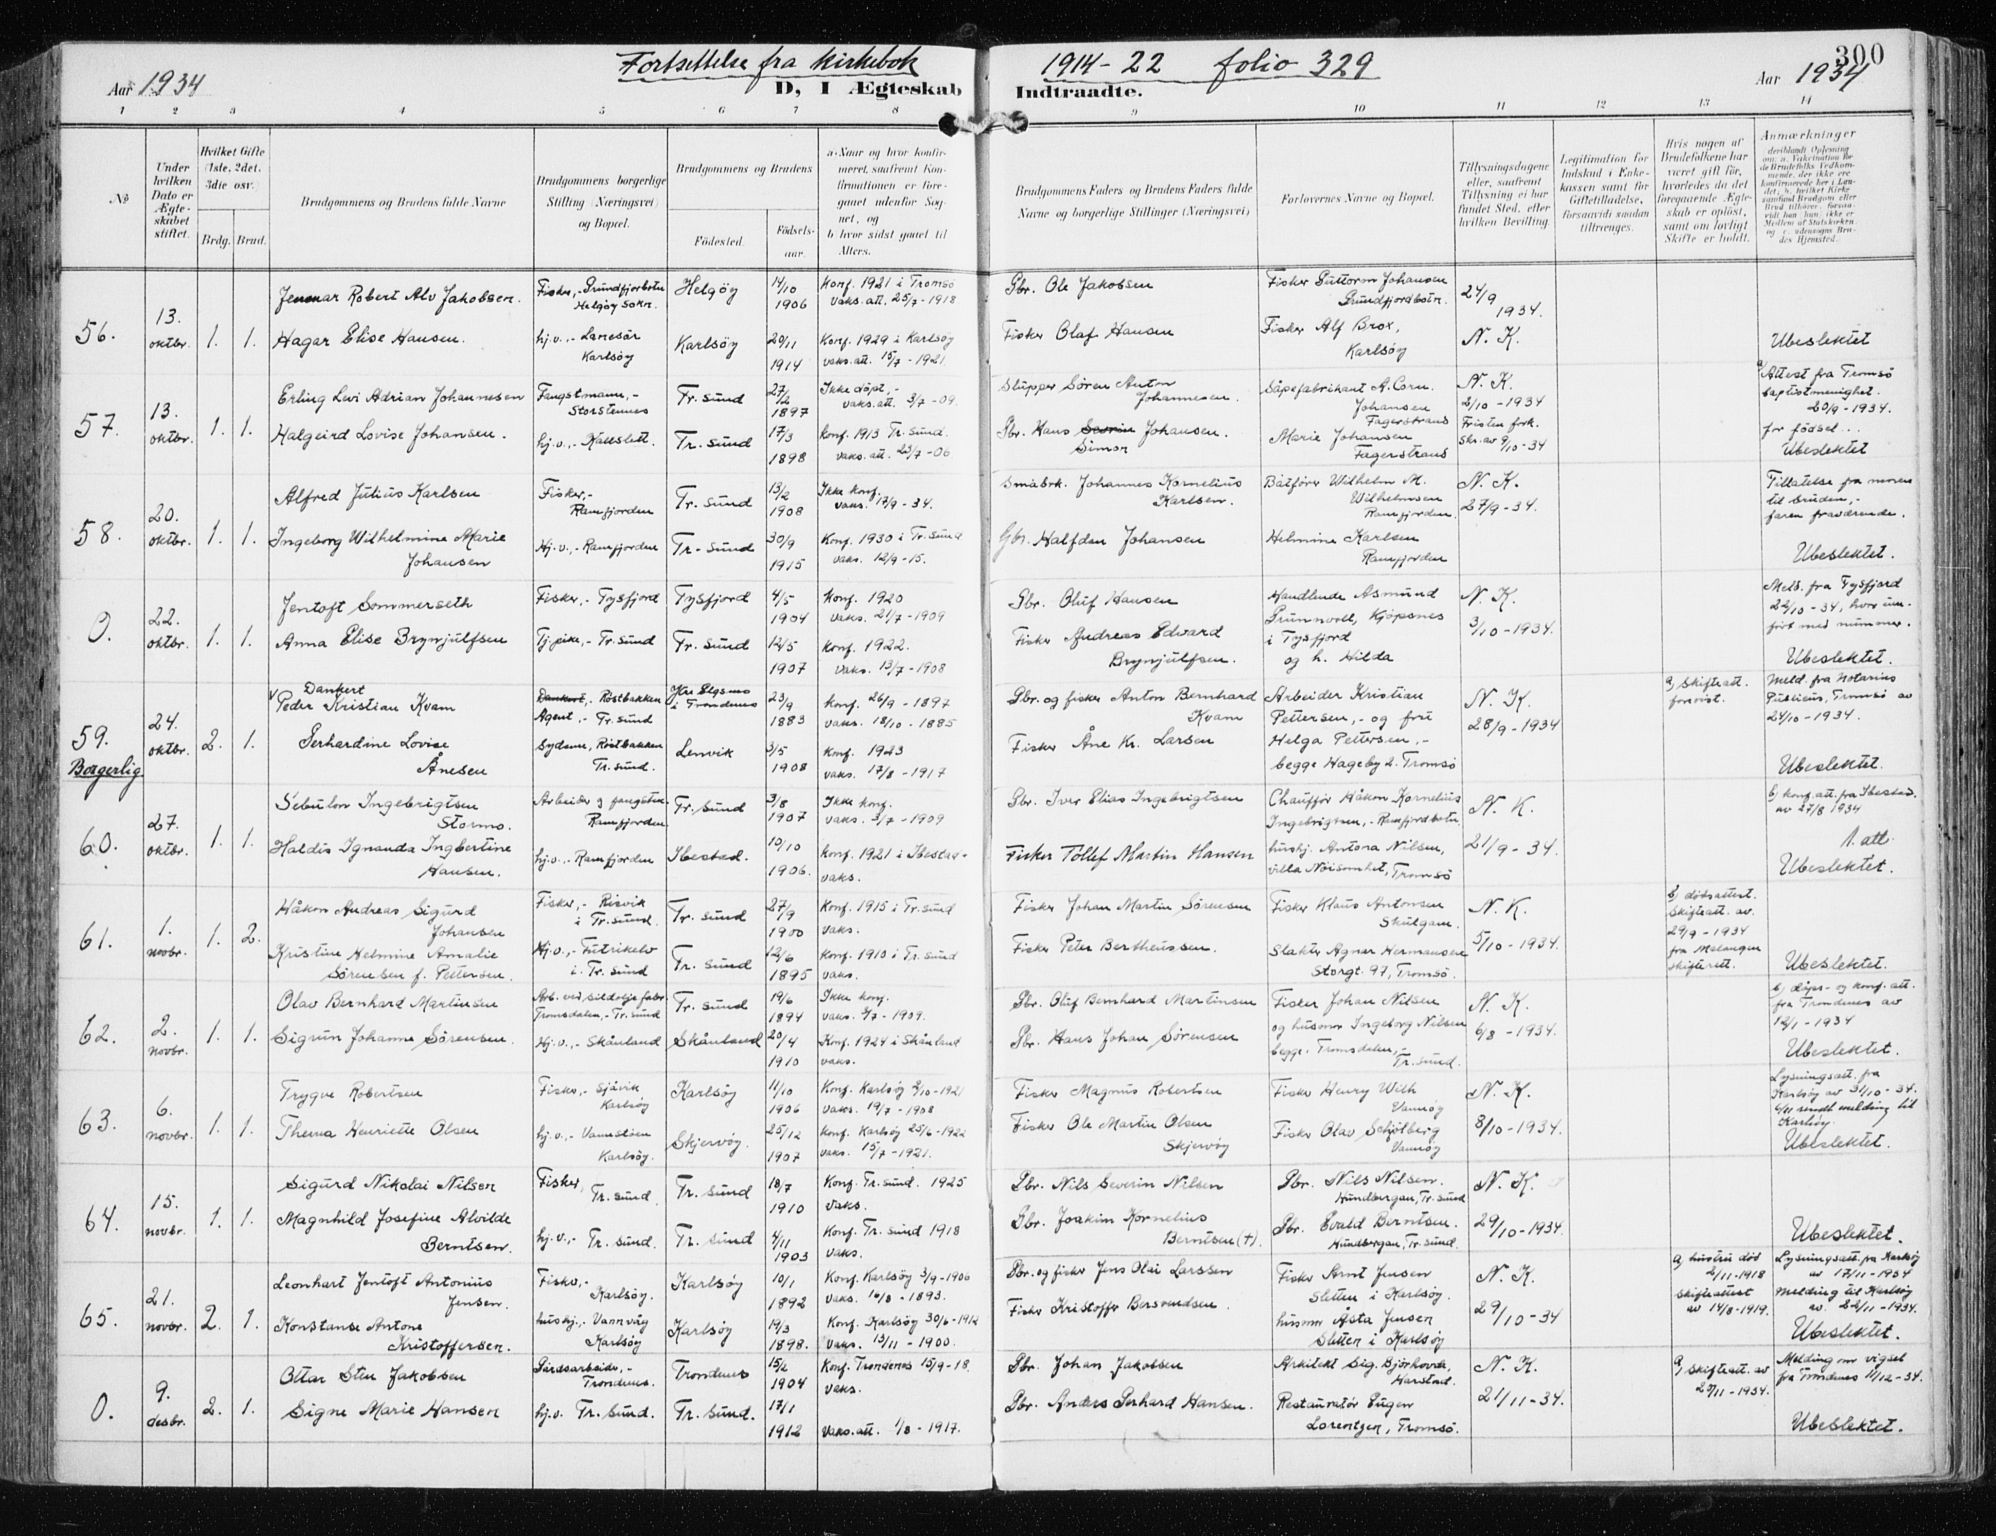 Fortsettelse fra kirkebok 1914-22 folio 329
300
Aar 1934
D, I Ægteskab Indtraadte.
Aar 1934
1 2 3 4 5 6 7 8 9 10 11 12 13 14
No
Under hvilken Dato er Ægteskabet stiftet.
Hvilket Gifte (1ste, 2det, 3die osv.)
Brdg. Brud.
Brudgommens og Brudens fulde Navne
Brudgommens borgerlige Stilling (Næringsvei) og Bopæl.
Brudgommens og Brudens
Födested.
Födselsaar.
a. Naar og hvor konfirmeret, saafremt Konfirmationen er foregaaet udenfor Sognet, og
b. hvor sidst gaaet til Alters.
Brudgommens Faders og Brudens Faders fulde Navne og borgerlige Stillinger (Næringsvei)
Forlovernes Navne og Bopæl.
Tillysningsdagene eller, saafremt Tillysning ei har fundet Sted, efter hvilken Bevilling
Legitimation for Indskud i Enkekassen samt for Giftetilladelse, forsaavidt saadan tiltrænges.
Hvis nogen af Brudefolkene har været gift för, hvorledes da det foregaaende Ægteskab er oplöst, samt om lovligt Skifte er holdt.
Anmærkninger
56.
13. oktbr.
1. 1.
Robert Alv Jakobsen.
Hagar Elise Hansen.
Fisker, - Grundfjorbotn Helgöy sokn.
hj.v., - Lanesör Karlsöy
Helgöy
Karlsöy
14/10 1906
20/11 1914
Konf. 1921 i Tromsö
vaks. att. 25/7 - 1918
Konf. 1929 i Karlsöy
vaks. att. 15/7 - 1921
Gbr. Ole Jakobsen
Fisker Olaf Hansen
Fisker Guttorm Johansen Grundfjordbotn.
Fisker Alf Brox, Karlsöy
24/9 1934.
N. K.
Ubeslektet
57.
13. oktbr.
1. 1.
Erling Levi Adrian Johannesen
Halgeird Lovise Johansen.
Fangstmann, - Storstennes
hj.v., - Kaldslett.
Tr. sund
Tr. sund
27/2 1897
17/3 1898
Ikke döpt, -
vaks. att. 3/7 - 09
Konf. 1913 Tr. sund.
vaks. att. 23/7 - 06
Skipper Sören Anton Johannesen.
Gbr. Hans Simon Johansen.
Såpefabrikant A. Corn. Johansen Fagerstrand
Marie Johansen Fagerstrand
N. K.
2/10 - 1934
Fristen fork. skr. av 9/10 - 34
a) Attest fra Tromsö baptistmenighet 20/9 - 1934. for födsel...
Ubeslektet
58.
20. oktbr.
1. 1.
Alfred Julius Karlsen
Ingeborg Wilhelmine Marie Johansen
Fisker, - Ramfjorden
Hj.v., - Ramfjorden
Tr. sund
Tr. sund
13/2 1908
30/9 1915
Ikke konf.
vaks. 17/9 - 34.
Konf. 1930 i Tr. sund
vaks. 12/9 - 15.
Småbrk. Johannes Kornelius Karlsen.
Gbr. Halfdan Johansen
Båtförer Wilhelm M. Wilhelmsen Ramfjorden.
Helmine Karlsen Ramfjorden
N. K.
27/9 - 34.
Tillatelse fra moren til bruden, - faren fraværende.
Ubeslektet.
0.
22. oktbr.
1. 1.
Jentoft Sommerseth
Anna Elise Brynjulfsen
Fisker, - Tysfjord
Tj.pike, - Tr. sund
Tysfjord
Tr. sund
4/5 1904
12/5 1907
Konf. 1920
vaks. 21/7 - 1909
Konf. 1922.
Vaks. 13/7 - 1908
Gbr. Oluf Hansen
Fisker Andreas Edvard Brynjulfsen.
Handlende Asmund Grunnvoll, Kjöpsnes i Tysfjord
og h. Hilda
N. K.
3/10 - 1934.
Meld. fra Tysfjord 22/10 - 34, hvor innfört med nummer.
Ubeslektet.
59. Borgerlig.
24. oktbr.
2. 1.
Peder Dankert Kristian Kvam
Gerhardine Lovise Ånesen
Dankert, Rostbakken
Agent, - Tr. sund
Sydame, Rostbakken Tr. sund.
i Trondenes
Lenvik
23/9 1883
3/5 1908
Konf. 26/9 - 1897
vaks. 18/10 - 1885
Konf. 1923
vaks. 17/8 - 1917
Gbr. og fisker Anton Bernhard Kvam
Fisker Åne Kr. Larsen
Arbeider Kristian Pettersen, - og fru Helga Pettersen, - begge Hageby 2. Tromsö
N. K.
28/9 - 1934
a) Skifteatt. forevist.
Meld. fra Notarius Publicus, Tromsö av 24/10 - 1934.
Ubeslektet.
60.
27. oktbr.
1. 1.
Sebulon Ingebrigtsen Stormo.
Haldis Ignanda Ingbertine Hansen.
Arbeider og fangstm. Ramfjorden
hj.v., - Ramfjorden
Tr. sund
Ibestad.
3/8 1907
10/10 1906.
Ikke konf.
vaks. 3/7 - 1909
Konf. 1921 i Ibestad -
vaks.
Gbr. Iver Elias Ingebrigtsen
Fisker Tollef Martin Hansen
Chaufför Håkon Kornelius Ingebrigtsen, - Ramfjordbotn.
hushj. Antora Nilsen, villa Nöisomhet, Tromsö
N. K.
21/9 - 34.
b) Konf. att. fra Ibestad. av 27/8 1934
1. att.
Ubeslektet.
61.
1. novbr.
1. 2.
Håkon Andreas Sigurd Johansen
Kristine Helmine Amalie Sörensen f. Pettersen.
Fisker, - Risvik i Tr. sund.
Hj.v., Futrikelv i. Tr. sund
Tr. sund
Tr. sund
27/9 1900
12/6 1895
Konf. 1915 i Tr. sund
vaks.
Konf. 1910 i Tr. sund
vaks.
Fisker Johan Martin Sörensen
Fisker Peter Bertheussen.
Fisker Klaus Antonsen Skulgam.
Slakter Agnar Hermansen Storgt. 97, Tromsö.
N. K.
5/10 - 1934.
b) dödsattest. skifteatt. av. 29/9 - 1934 fra Malangen skifterett.
Ubeslektet.
62.
2. novbr.
1. 1.
Olav Bernhard Martinsen
Sigrun Johanne Sörensen.
Arb. ved sildoljefabr. Tromsdalen, - Tr. sund
Hj.v., - Skånland
Tr. sund
Skånland
19/6 1894
20/4 1910
Ikke konf.
vaks. 9/7 - 1909.
Konf. 1924 i Skånland
vaks.
Gbr. Oluf Bernhard Martinsen
Gbr. Hans Johan Sörensen
Fisker Johan Nilsen
og husmor Ingeborg Nilsen begge. Tromsdalen, - Tr. sund.
N. K.
6/8 - 1934.
b) dåps- og konf. att. fra Trondenes av 12/1 - 1934
Ubeslektet.
63.
6. novbr.
1. 1.
Trygve Robertsen
Thema Henriette Olsen
Fisker, - Sjåvik Karlsöy
hj.v., - Vannstuen Karlsöy.
Karlsöy
Skjervöy.
11/10 1906
25/12 1907
Konf. Karlsöy 2/10 - 1921
Vaks. 19/7 - 1908
Konf. Karlsöy 25/6 - 1922
vaks. 15/7 - 1921.
Fisker Magnus Robertsen
Fisker Ole Martin Olsen Skjervöy
Fisker Henry With Vannöy
Fisker Olav Schjölberg Vannöy
N. K.
8/10 - 1934.
Lysningsatt. fra Karlsöy av 31/10 - 34. sendt melding til Karlsöy.
Ubeslektet.
64.
15. novbr.
1. 1.
Sigurd Nikolai Nilsen
Magnhild Josefine Alvilde Berntsen.
Fisker, Tr. sund.
hj.v., - Tr. sund.
Tr. sund
Tr. sund
18/7 1910
4/11 1903
Konf. Tr. sund. 1925
vaks.
Konf. Tr. sund 1918
vaks.
Gbr. Nils Severin Nilsen
Gbr. Joakim Kornelius Berntsen (+).
Gbr. Nils Nilsen. Hundbergan, Tr. sund
Gbr. Evald Berntsen. Hundbergan, Tr. sund.
N. K.
29/10 - 1934.
Ubeslektet.
65.
21. novbr.
2. 1.
Leonhart Jentoft Antonius Jensen.
Konstanse Antone Kristoffersen.
Fisker, - Karlsöy.
hushj., - Vannvåg Karlsöy
Karlsöy
Karlsöy
10/1 1892
19/3 1898.
Konf. Karlsöy 3/9 - 1906
Vaks. 16/8 - 1893.
Konf. Karlsöy 30/6 - 1912
Vaks. 13/11 - 1900.
Gbr. og fisker Jens Olai Larssen
Fisker Kristoffer Bersvendsen.
Fisker Arnt Jensen Sletten i Karlsöy.
husmor Åsta Jensen Sletten i Karlsöy
N. K.
29/10 - 34
a) hustru död 2/11 - 1918 skifteattest av 14/8 - 1919.
Lysningsatt. fra Karlsöy av 17/11 - 1934
Melding til Karlsöy av. 22/11 - 1934.
Ubeslektet.
0.
9. desbr.
2. 1.
Ottar Sten Jakobsen
Signe Marie Hansen
Gårdsarbeider, - Trondenes.
hj.v. Tr. sund.
Trondenes
Tr. sund.
15/2 1904
17/1 1912
Konf. Trondenes 15/9 - 18.
vaks.
vaks. att. 1/8 - 1917.
Gbr. Johan Jakobsen
Gbr. Anders Gerhard Hansen.
Arkitekt Sig. Björhovde, Harstad.
Restauratör Eugen Lorentzen, Tromsö.
N. K.
21/11 - 34.
a) Skifteatt. av 29/11 - 1934.
Melding om vigsel fra Trondenes 11/12 - 34.
Ubeslektet.